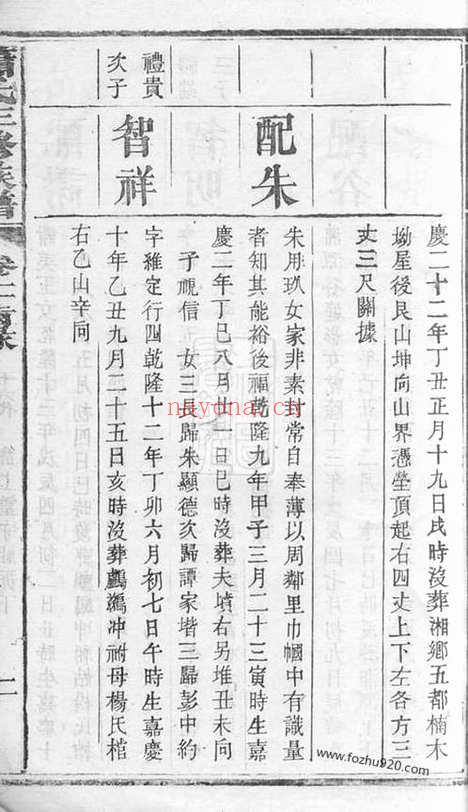 慶二十二年丁丑正月十九日戌時沒葬湘鄉五都楠木
坳屋後艮山坤向山界憑塋頂起右四丈上下左各方三
丈三尺關據
配朱
朱用玖女家非素封常自奉薄以周鄰里巾幗中有識量
者知其能裕後福乾隆九年甲子三月二十三寅時生嘉
慶二年丁巳八月廿一日巳時沒葬夫墳右另堆丑未向
子視信 女三長歸朱顯德次歸譚家堦三歸彭中約
禮貴
次子
智祥
字雅定行四乾隆十二年丁卯六月初七日午時生嘉慶
十年乙丑九月二十五日亥時沒葬鸕鷀冲祔母楊氏棺
右乙山辛向
氏三修族譜
卷十二
naydna.cn
www.fozhu920.com